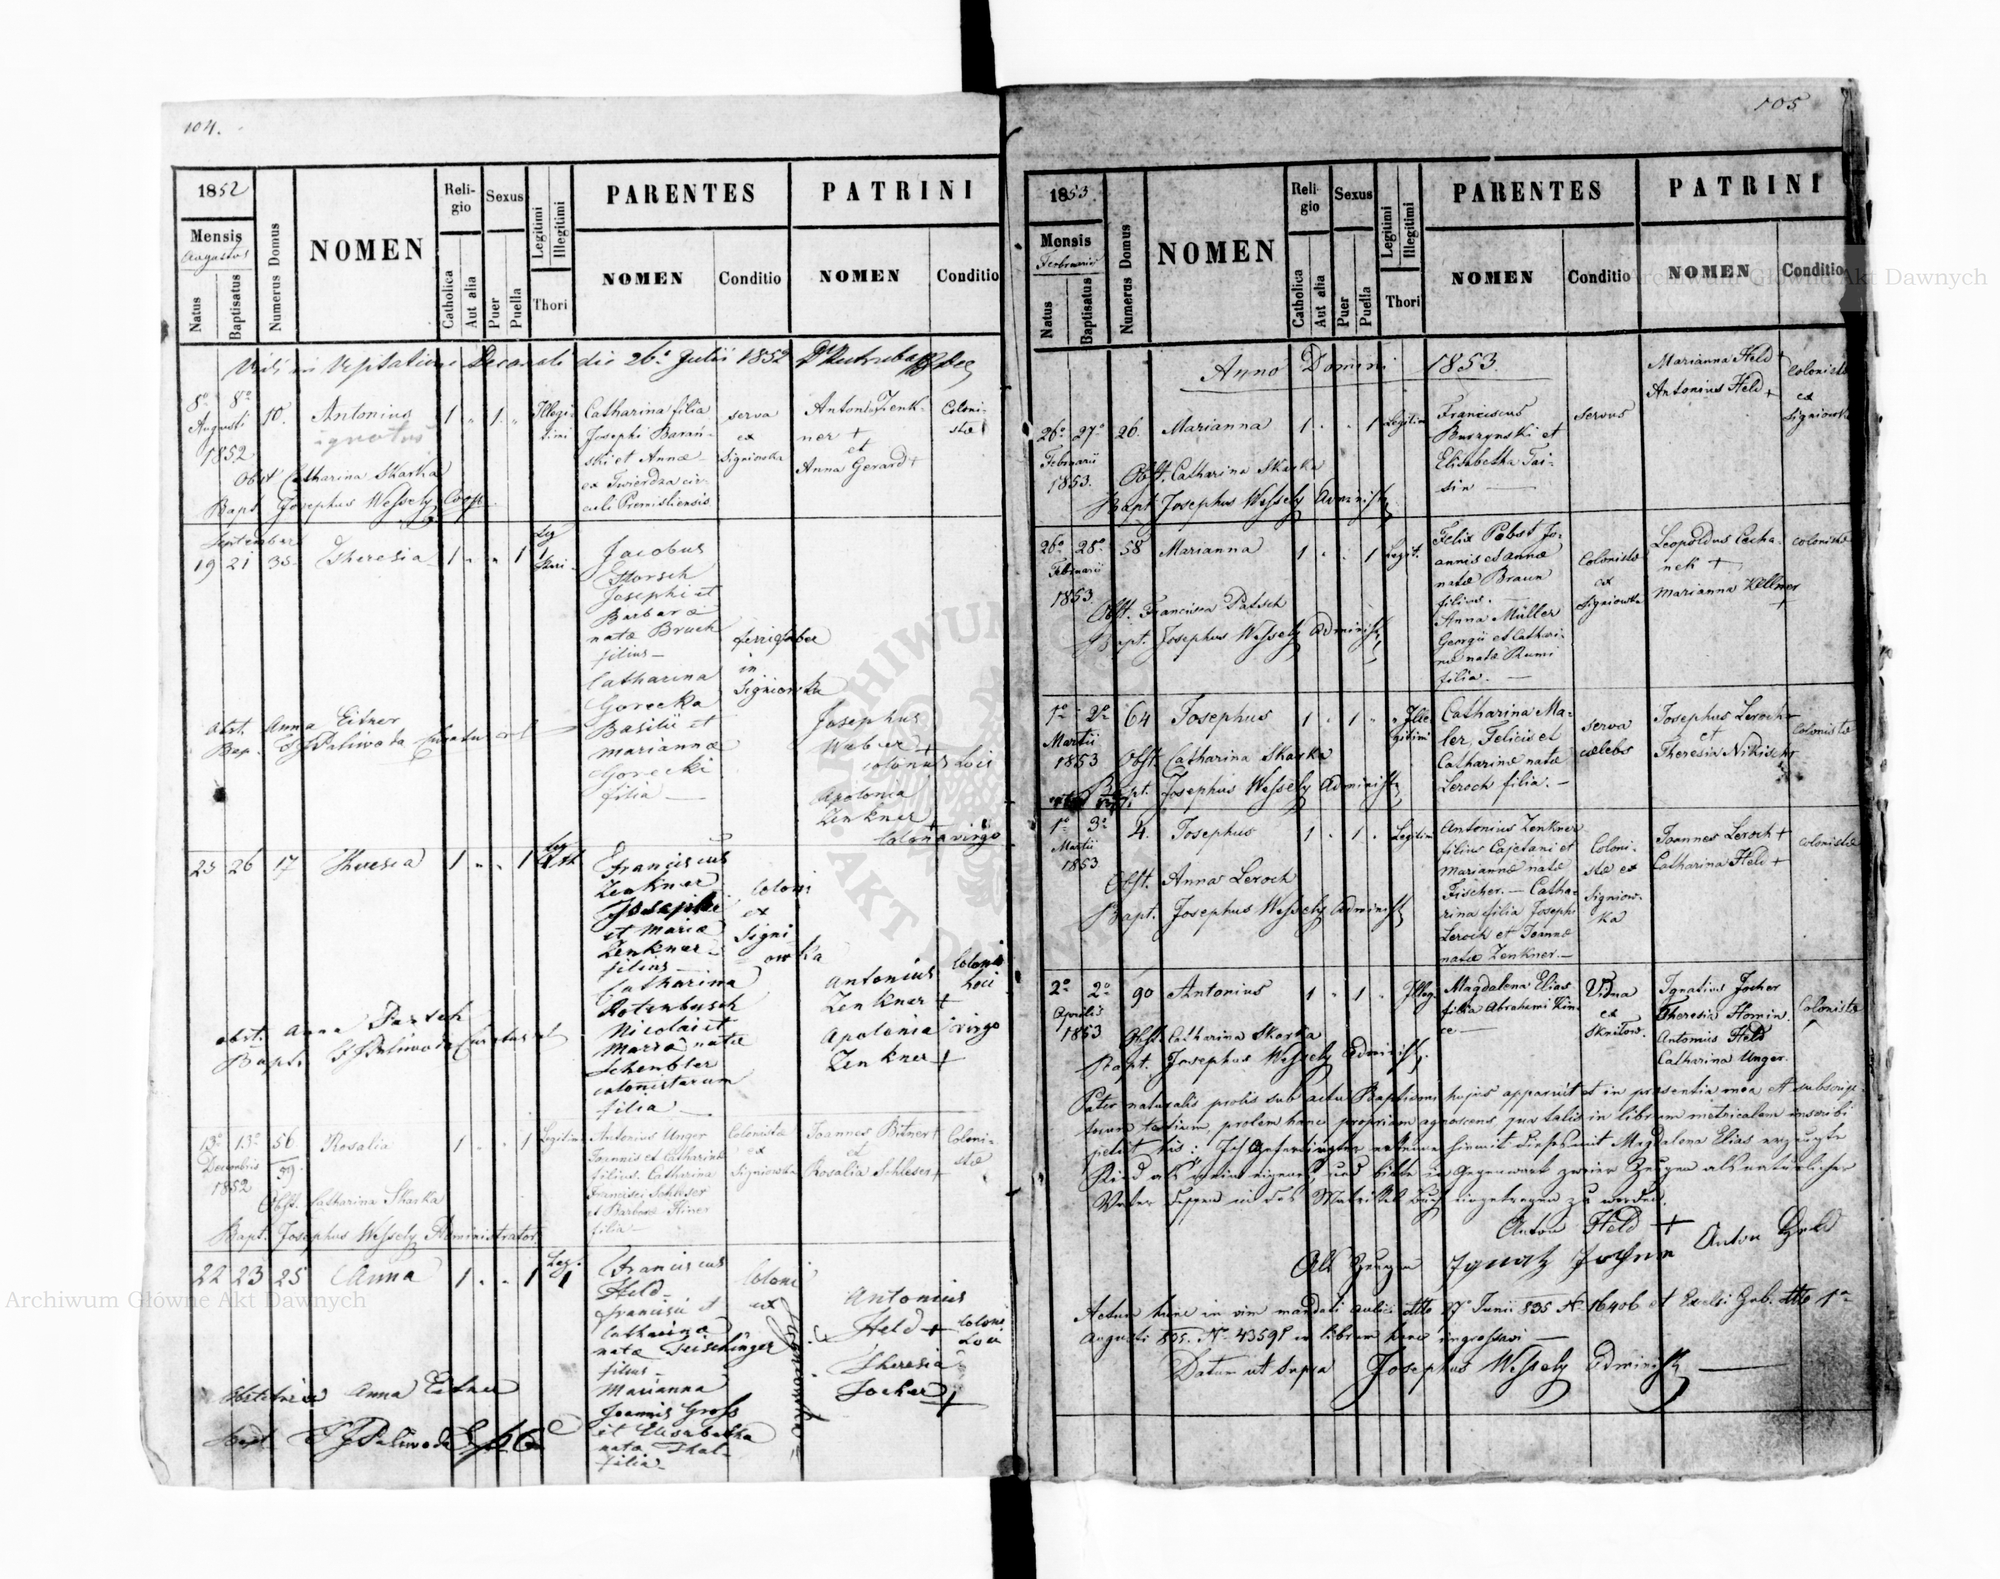 104.
1852
Mensis
Augustus
Natus
Baptisatus
Numerus Domus
NOMEN
Reli-
gio
Catholica
Aut alia
Sexus
Puer
Puella
Legitimi
Illegitimi
Thori
PARENTES
NOMEN
Conditio
PATRINI
NOMEN
Conditio
die 26a Julii 1852
8o 8o 10. Antonius 1 " 1 "
Augusti
1852
Illegi-
timi
Catharina filia
Josephi Barań-
ski et Annæ
ex Twierdza cir-
culi Premisliensis
serva
ex
Signiowka
Anton Zenk-
ner +
et
Anna Gerard +
Coloni-
stæ
Obst Catharina Skarka
Bapt. Josephus Wessely Coop.
September
19 21 35 Theresia 1 " " 1
Leg
Jacobus
Storsch
Josephi et
Barbaræ
natæ Bruch
filius —
Catharina
Gorecka
Basilii et
Mariannæ
Gorecki
filia —
in
Signiowka
Josephus
Weber +
colonus Loci
Apolonia
Zenkner +
Colona virgo
obst. Anna Eitner
Bap. Paliwoda
23 26 17 Theresia 1 " " 1
Leg
Franciscus
Zenkner
Josephi
et Mariæ
Zenkner
filius —
Catharina
Rotenbusch
Nicolai et
Maria natæ
Schenbler
colonistarum
filia —
Coloni
ex
Signi-
owka
Antonius
Zenkner +
Apolonia
Zenkner +
Coloni
Loci
virgo
obst. Anna Partsch
Bapt. Paliwoda
13o 13o 56 Rosalia 1 " " 1 Legitimi
Decembris 99.
1852
Antonius Unger
Joannis et Catharinæ
filius. Catharina
Francisci Schleser
et Barbaræ
filia —
Colonistæ
ex
Signiowka
Joannes Bitner +
et
Rosalia Schleser +
Coloni-
stæ
Obst. Catharina Skarka
Bapt. Josephus Wessely Administrator
22 23 25 Anna 1 " " 1
Leg.
Franciscus
Held
Francisci et
Catharinæ
natæ Teischinger
filius —
Marianna
Joannis Gross
et Elisabetha
nata Thal-
filia —
Coloni
ex
Signiowka
Antonius
Held +
Theresia
Jocher +
Coloni
Loci
Obstetrix Anna Eitner
Bapt. Paliwoda
105
1853.
Mensis
Februarii
Natus
Baptisatus
Numerus Domus
NOMEN
Reli-
gio
Catholica
Aut alia
Sexus
Puer
Puella
Legitimi
Illegitimi
Thori
PARENTES
NOMEN
Conditio
PATRINI
NOMEN
Conditio
Anno Domini 1853.
26o 27o 26. Marianna 1 " " 1 Legitimi
Februarii
1853.
Franciscus
Burzynski et
Elisabetha Tai-
sin —
servus
Marianna Held +
Antonius Held +
colonistæ
ex
Signiowka
Obst. Catharina Skarka
Bapt Josephus Wessely Administr
26o 28o 58 Marianna 1 " " 1 Legit.
Februarii
1853
Felix Pobst Jo-
annis et Annæ
natæ Braun
filius. —
Anna Müller
Georgii et Cathari-
næ natæ Rumi
filia. —
Colonistæ
ex
Signiowka
Leopoldus Cecha-
nek +
Marianna Kellner
+
colonistæ
Obst. Francisca Patsch
Bapt. Josephus Wessely Administr
1o 2o 64 Josephus 1 " 1 " Ille-
gitimi
Martii
1853
Catharina Ma-
ler, Felicis et
Catharinæ natæ
Leroch filia. —
serva
cælebs
Josephus Leroch
et
Theresia Nikisch
colonistæ
Obst. Catharina Skarka
Bapt. Josephus Wessely Administr
1o 3o 4. Josephus 1 " 1 " Legitimi
Martii
1853
Antonius Zenkner
filius Cajetani et
Mariannæ natæ
Fischer. — Catha-
rina filia Josephi
Leroch et Joannæ
natæ Zenkner. —
Coloni-
stæ ex
Signiow-
ka
Joannes Leroch +
Catharina Held +
colonistæ
Obst. Anna Leroch
Bapt. Josephus Wessely Administr
2o 2o 90 Antonius 1 " 1 " Illeg.
Aprilis
1853
Magdalena Elias
filia Abrahami
Vidua
ex
Sknilow.
Ignatius Jocher
Theresia Homin.
Antonius Held
Catharina Unger.
Colonistæ
Obst. Catharina Skarka
Bapt. Josephus Wessely Administr.
Pater naturalis prolis sub actu Baptismi hujus apparuit et in præsentia mea et subscrip-
torum testium, prolem hanc propriam agnoscens qua talis in librum metricalem inscribi
petiit his: Ich Gefertigter erkenne hiermit dieses mit Magdalena Elias erzeugte
Kind als mein eigenes, und bitte in Gegenwart zweier Zeugen als natürlicher
Vater dessen in das Matrikel Buch eingetragen zu werden.
Anton Held + Anton Held
Als Zeugen Ignatz Jochem
Actum hunc in vim mandati aulici dtto 27 Junii 835 No 16406 et Excelsi Gub. dtto 1a
Augusti 835. No 43591 in librum hunc ingrossavi —
Datum ut supra Josephus Wessely Administr
Archiwum Główne Akt Dawnych
Archiwum Główne Akt Dawnych